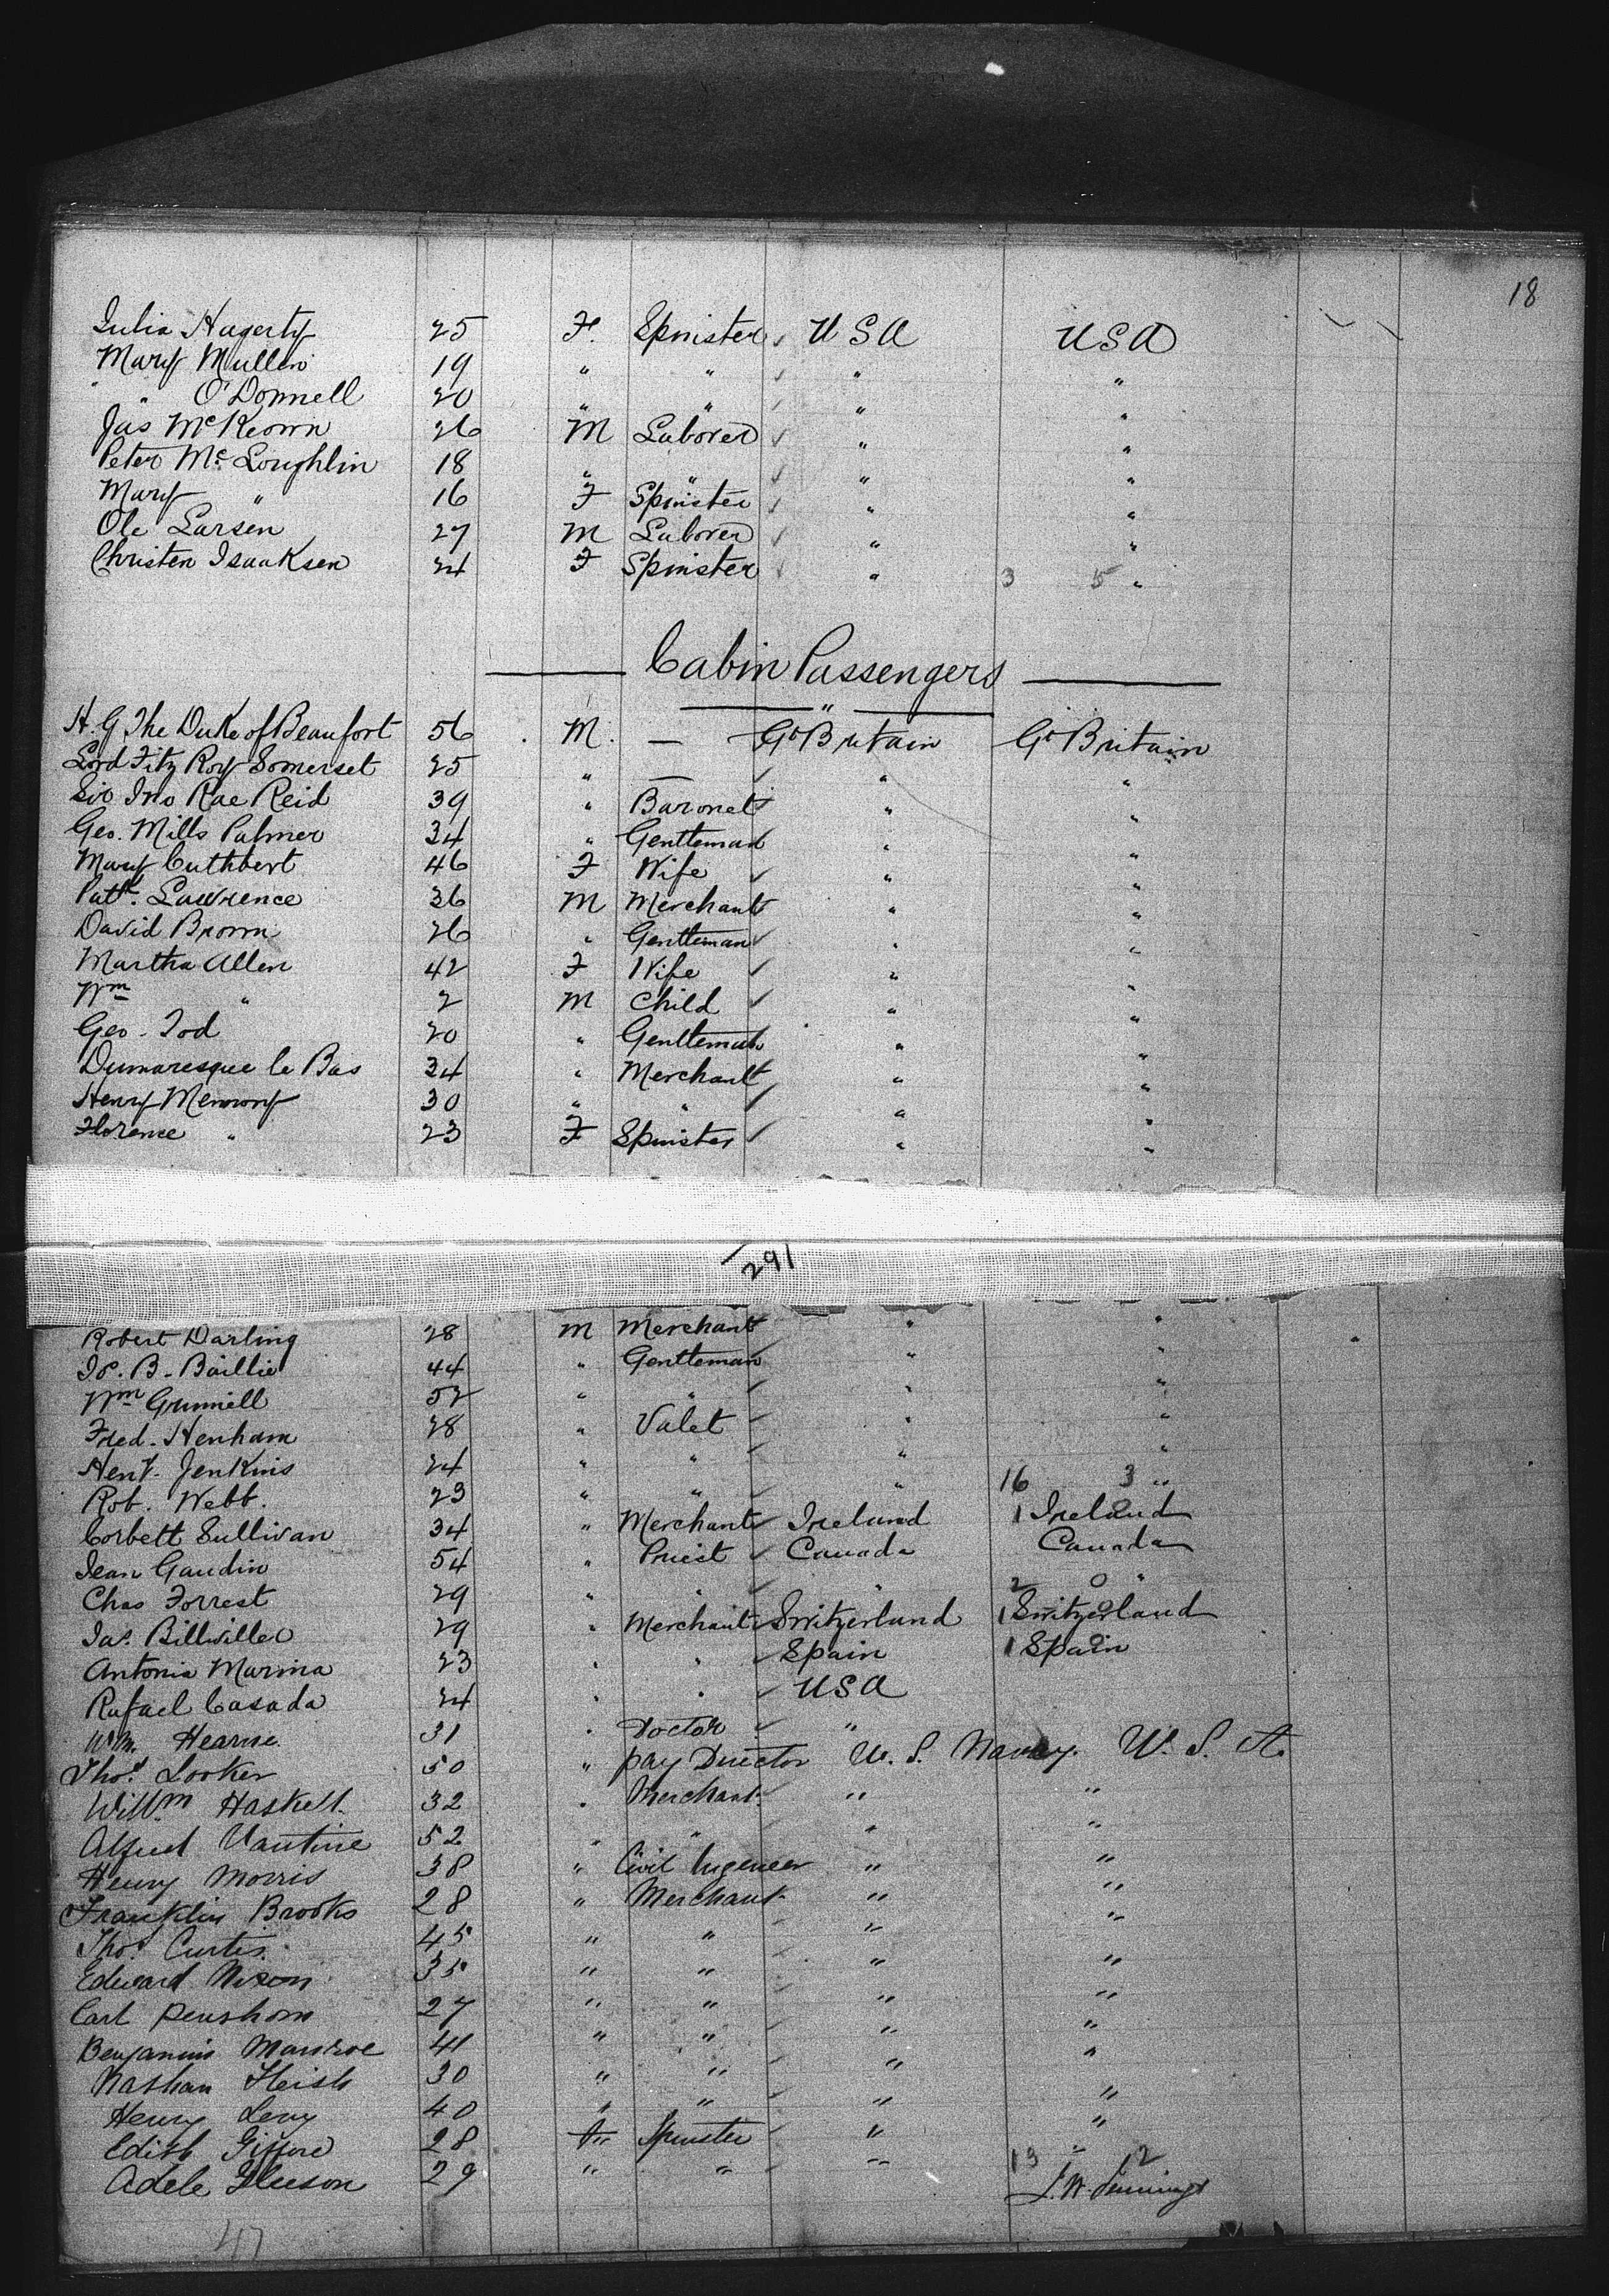 18
Julia Hagerty 25 F. Spinster USA USA
Mary Mullin 19 " " " "
" O'Donnell 20 " " " "
Jas McKeown 26 M Laborer " "
Peter McLoughlin 18 " " " "
Mary " 16 F Spinster " "
Ole Larsen 27 M Laborer " "
Christen Isaaksen 24 F Spinster " 3 5 "
Cabin Passengers
"
H. G The Duke of Beaufort 56 M. — Gt Britain Gt Britain
Lord Fitz Roy Somerset 25 " — " "
Sir Jno Rae Reid 39 " Baronet " "
Geo. Mills Palmer 34 " Gentleman " "
Mary Cuthbert 46 F Wife " "
Patk. Lawrence 36 M Merchant " "
David Brown 26 " Gentleman " "
Martha Allen 42 F Wife " "
Wm " 2 M Child " "
Geo. Tod 20 " Gentleman " "
Dumaresque le Bas 34 " Merchant " "
Henry 30 " " " "
Florence " 23 F Spinster " "
291
Robert Darling 28 M Merchant " "
Js. B. Baillie 44 " Gentleman " "
Wm Grinnell 52 " " " "
Fred. Henham 28 " Valet " "
Heny. Jenkins 24 " " " "
Rob. Webb. 23 " " " 16 3 "
Corbett Sullivan 34 " Merchant Ireland 1 Ireland
Jean Gaudin 54 " Priest Canada Canada
Chas Forrest 29 " " " 2 0 "
Jas. Billwiller 29 " Merchant Switzerland 1 Switzerland
Antonia Marina 23 " " Spain 1 Spain
Rafael Casada 24 " " USA
Wm. Hearne. 31 " Doctor "
Thos. Looker 50 " pay Director U. S. Navy. U. S. A.
Willm Haskell. 32 " Merchant " "
Alfred Vantine 52 " " " "
Henry Morris 38 " Civil Ingeneer " "
Franklin Brooks 28 " Merchant " "
Thos. Curtis. 45 " " " "
Edward Nixon 35 " " " "
Carl 27 " " " "
Benjamin Munroe 41 " " " "
Nathan 30 " " " "
Henry Levy 40 " " " "
Edith 28 F Spinster " "
Adele Gleeson 29 " " " 13 12
J. W. Jennings
47